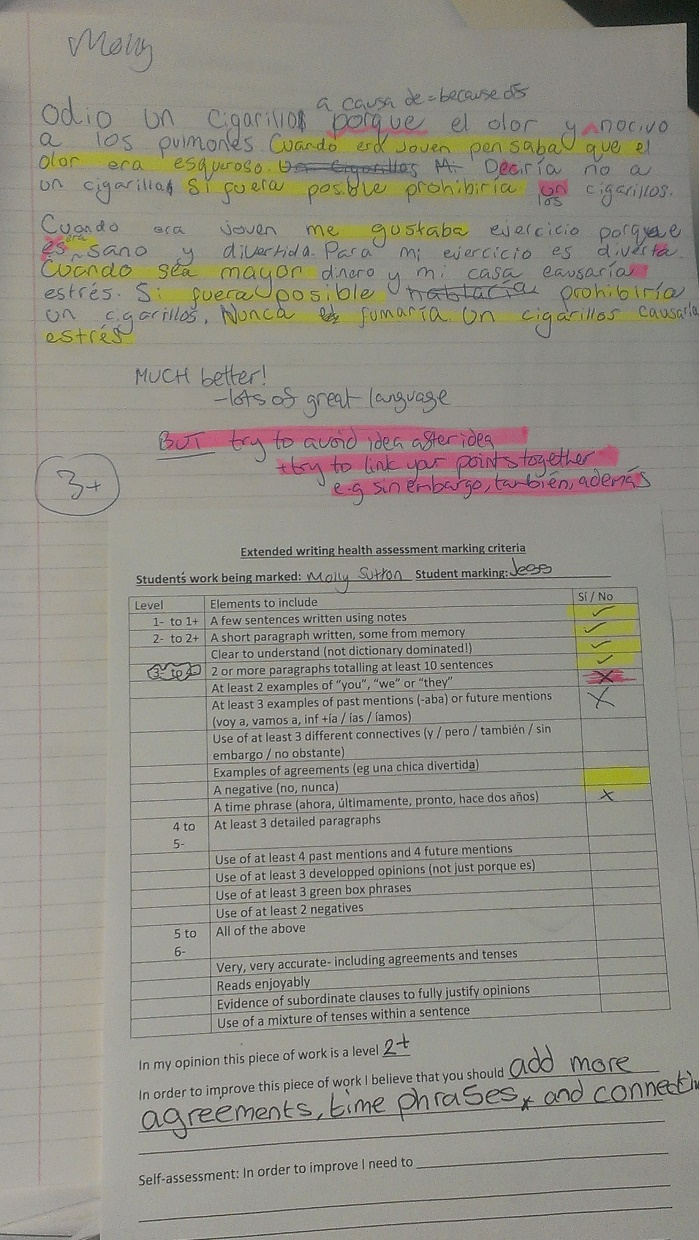 Molly
a causa de = because of
odio un cigarillos porque el olor y nocivo
a los pulmones Cuando era joven pensaba que el
olor era esqueroso. Un cigarillos M. Deciría no a
un cigarillos Si fuera posible prohibiria un cigarillos.
los
Cuando era joven me gustaba ejercicio porque
era
es sano y divertida. Para mi ejercicio es diverta.
Cuando sea mayor dinero y mi casa causaría
estrés. Si fuera posible hablaría prohibiria
un cigarillos. Nunca fumaría. Un cigarillos causaria
estrés
MUCH better!
- lots of great language
BUT try to avoid idea after idea
+ try to link your points together
e.g sin embargo, también, además
3+
Extended writing health assessment marking criteria
Students work being marked: Molly Sutton Student marking: Jess
Level Elements to include Sí / No
1- to 1+ A few sentences written using notes ✓
2- to 2+ A short paragraph written, some from memory ✓
Clear to understand (not dictionary dominated!) ✓
2 or more paragraphs totalling at least 10 sentences ✓
At least 2 examples of "you", "we" or "they" X
At least 3 examples of past mentions (-aba) or future mentions X
(voy a, vamos a, inf +ía / ías / íamos)
Use of at least 3 different connectives (y / pero / también / sin
embargo / no obstante)
Examples of agreements (eg una chica divertida)
A negative (no, nunca)
A time phrase (ahora, últimamente, pronto, hace dos años) X
4 to At least 3 detailed paragraphs
5-
Use of at least 4 past mentions and 4 future mentions
Use of at least 3 developped opinions (not just porque es)
Use of at least 3 green box phrases
Use of at least 2 negatives
5 to All of the above
6-
Very, very accurate- including agreements and tenses
Reads enjoyably
Evidence of subordinate clauses to fully justify opinions
Use of a mixture of tenses within a sentence
In my opinion this piece of work is a level 2+
In order to improve this piece of work I believe that you should add more
agreements, time phrases, and connecti
Self-assessment: In order to improve I need to